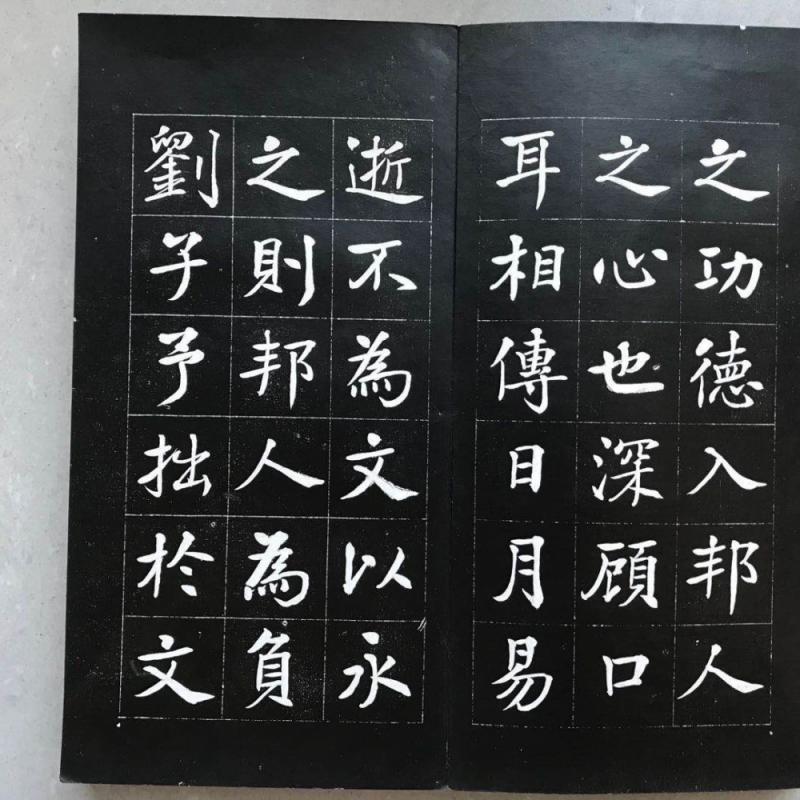 之功德入邦人
之心也深顧口
耳相傳日月易
逝不為文以永
之則邦人為負
劉子予拙於文